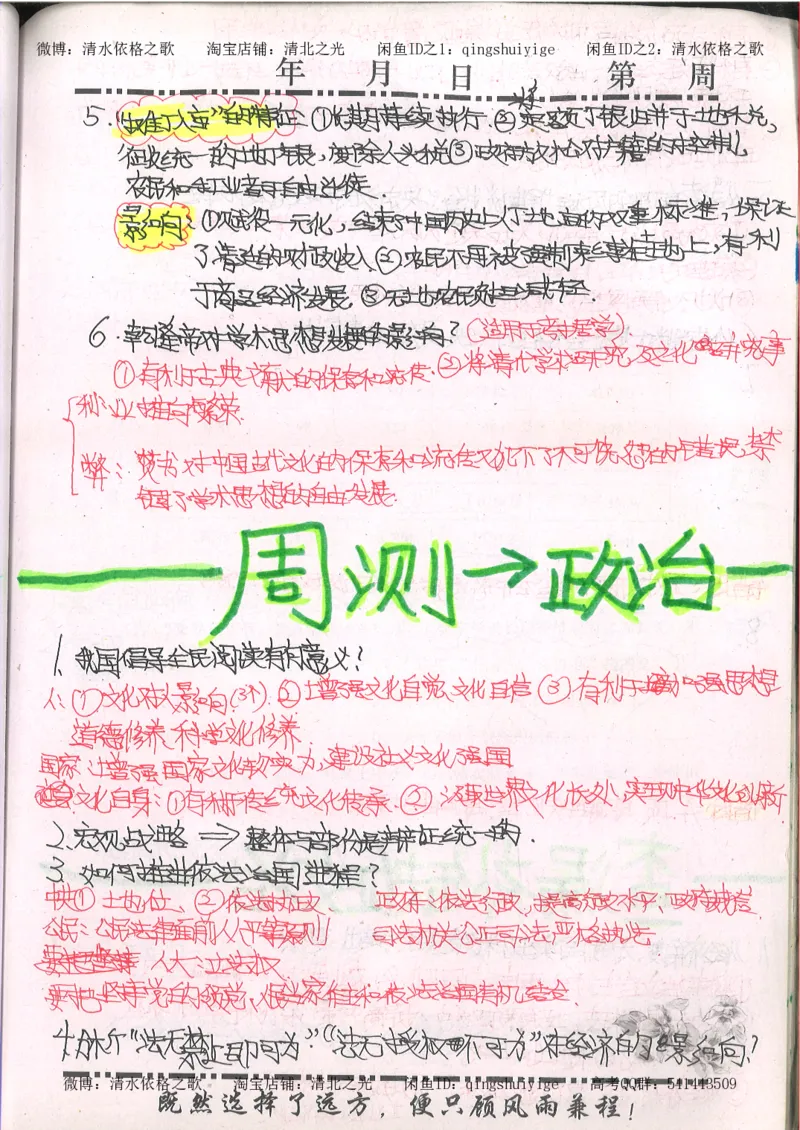 微博：清水依格之歌 淘宝店铺：清北之光 闲鱼ID之1：qingshuiyige 闲鱼ID之2：清水依格之歌
年 月 日 第 周
5. "摊丁入亩"的特征：①长期持续执行 ②实现了银归并于土地米兑，
征收统一的地丁银，废除人头税③政府放松对户籍的控制，
农民和手工业者可自由迁徙.
影响：①赋役一元化，结束了中国历史上人丁土地的双重标准，保证
了清廷的财政收入 ②农民不用被强制束缚在土地上，有利
于商品经济发展 ③无地农民负担减轻
6. 乾隆帝对学术思想发展的影响？（适用于考据学）
①有利于古典文献的保存和流传 ②将清代学术研究及文化 事
利：业推向繁荣
弊：焚书对中国古代文化的保存和流传又犯下了不可饶恕的 ，禁
锢了学术思想的自由发展.
周测→政治
1. 我国倡导全民阅读有何意义？
人：①文化对人影响（3个）②增强文化自觉、文化自信 ③有利于加强思想
道德修养、科学文化修养
国家：增强国家文化软实力，建设社义文化强国
文化自身：①有利于传统文化传承 ② 世界文化长处，实现中华文化创新
2. 宏观战略 ⇒ 整体与部份是辩证统一的.
3. 如何推进依法治国进程？
中共①土地位、②依法执政、 政府：依法行政，提高行政水平、政府威信
公民：公民法律面前人人平等原则 司法机关公正司法，严格执法
人大：立法权
要把坚持党的领导，人民当家作主和依法治国有机结合.
4. 为什么"法无禁止即可为""法无授权不可为"对经济的影响？
微博：清水依格之歌 淘宝店铺：清北之光 闲鱼ID：qingshuiyige 高考QQ群：541443509
既然选择了远方，便只顾风雨兼程！